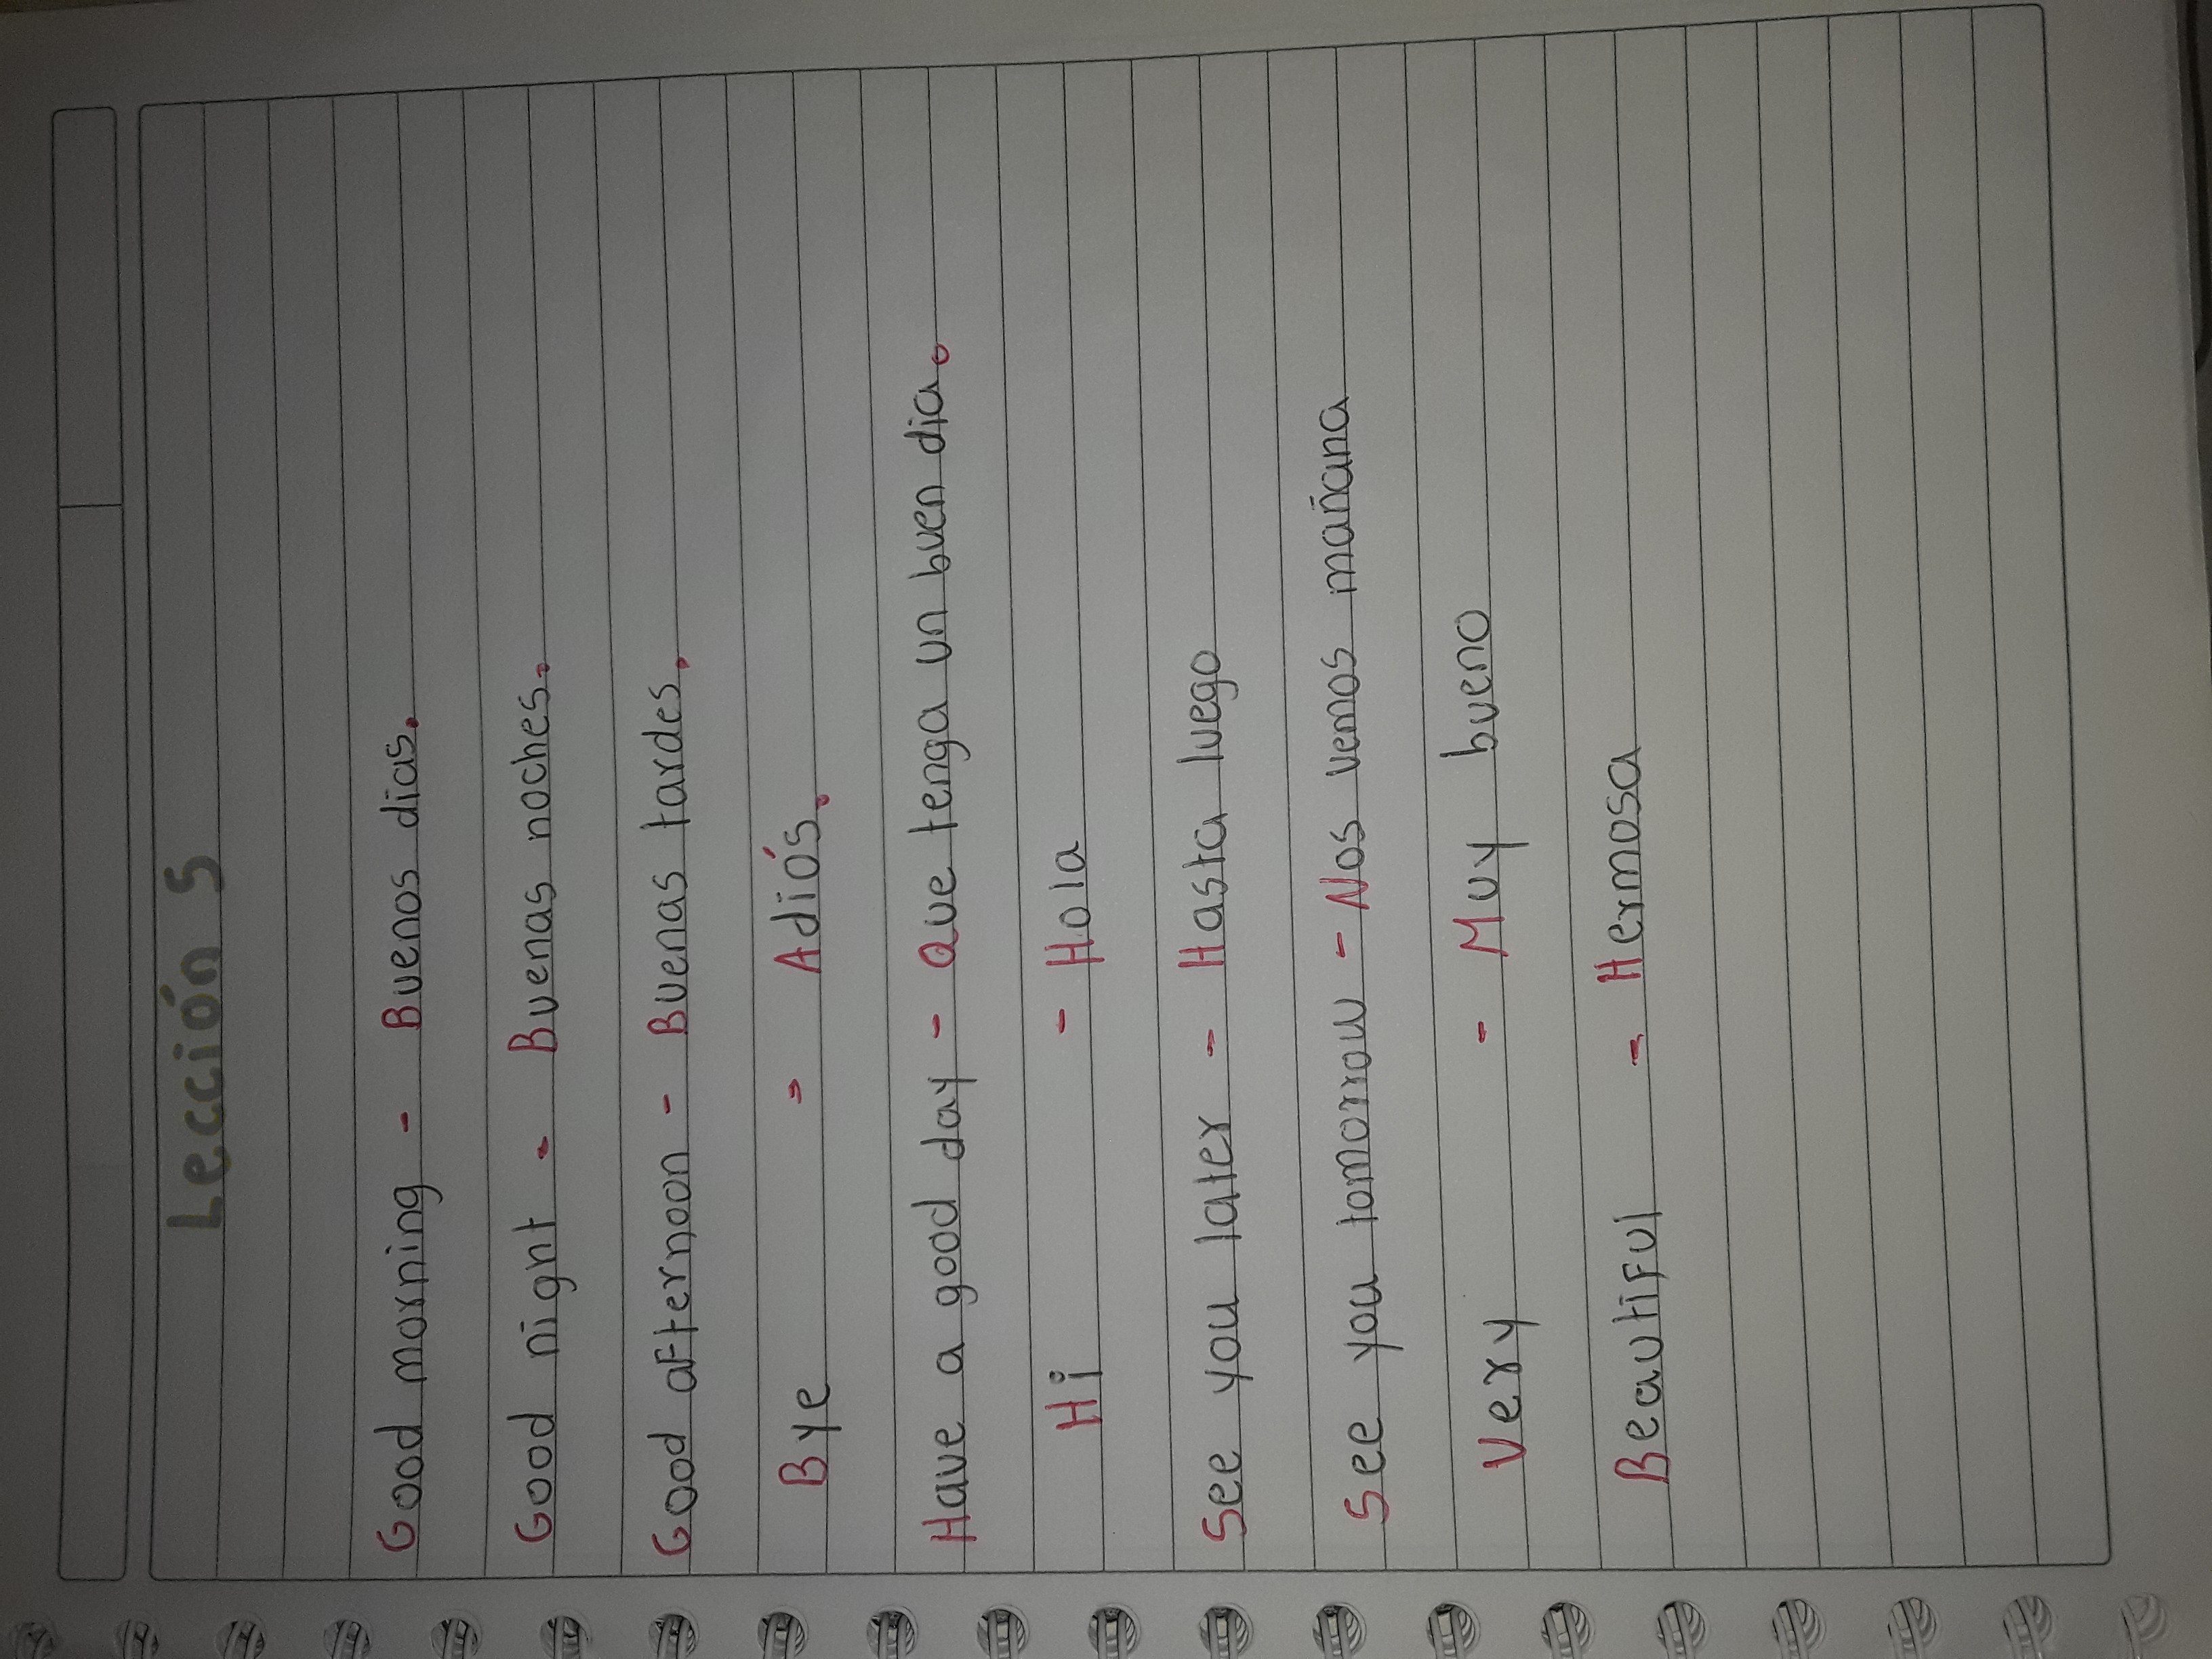 Lección 5
Good morning - Buenos dias.
Good night - Buenas noches.
Good afternoon - Buenas tardes.
Bye - Adiós.
Have a good day - Que tenga un buen dia.
Hi - Hola
See you later - Hasta luego
See you tomorrow - Nos vemos mañana
Very - Muy bueno
Beautiful - Hermosa